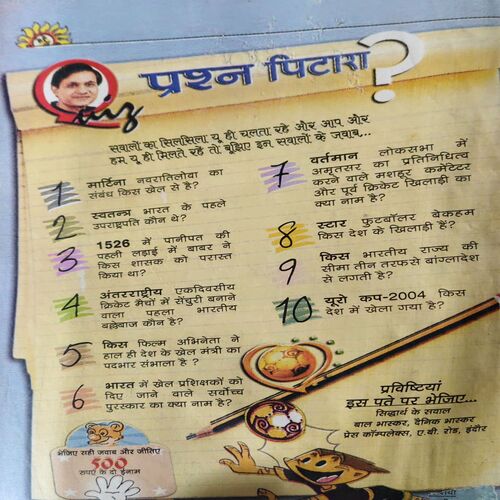 Quiz
प्रश्न पिटारा?
सवालों का सिलसिला यू ही चलता रहे और आप और
हम यू ही मिलते रहें तो बूझिए इन सवालों के जवाब...
1 मार्टिना नवरातिलोवा का
संबंध किस खेल से है?
2 स्वतन्त्र भारत के पहले
उपराष्ट्रपति कौन थे?
3 1526 में पानीपत की
पहली लड़ाई में बाबर ने
किस शासक को परास्त
किया था?
4 अंतरराष्ट्रीय एकदिवसीय
क्रिकेट मैचों में सेंचुरी बनाने
वाला पहला भारतीय
बल्लेबाज कौन है?
5 किस फिल्म अभिनेता ने
हाल ही देश के खेल मंत्री का
पदभार संभाला है ?
6 भारत में खेल प्रशिक्षकों को
दिए जाने वाले सर्वोच्च
पुरस्कार का क्या नाम है?
7 वर्तमान लोकसभा में
अमृतसर का प्रतिनिधित्व
करने वाले मशहूर कमेंटेटर
और पूर्व क्रिकेट खिलाड़ी का
क्या नाम है?
8 स्टार फुटबॉलर बेकहम
किस देश के खिलाड़ी हैं?
9 किस भारतीय राज्य की
सीमा तीन तरफ से बांग्लादेश
से लगती है?
10 यूरो कप-2004 किस
देश में खेला गया है?
प्रविष्टियां
इस पते पर भेजिए...
सिद्धार्थ के सवाल
बाल भास्कर, दैनिक भास्कर
प्रेस कॉम्पलेक्स, ए.बी. रोड, इंदौर
भेजिए सही जवाब और जीतिए
500
रुपए के दो ईनाम